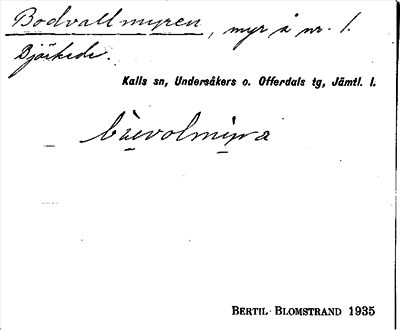 Bodvallmyren, myr å nr. 1.
Björkede.
Kalls sn, Undersåkers o. Offerdals tg, Jämtl. l.
BERTIL BLOMSTRAND 1935